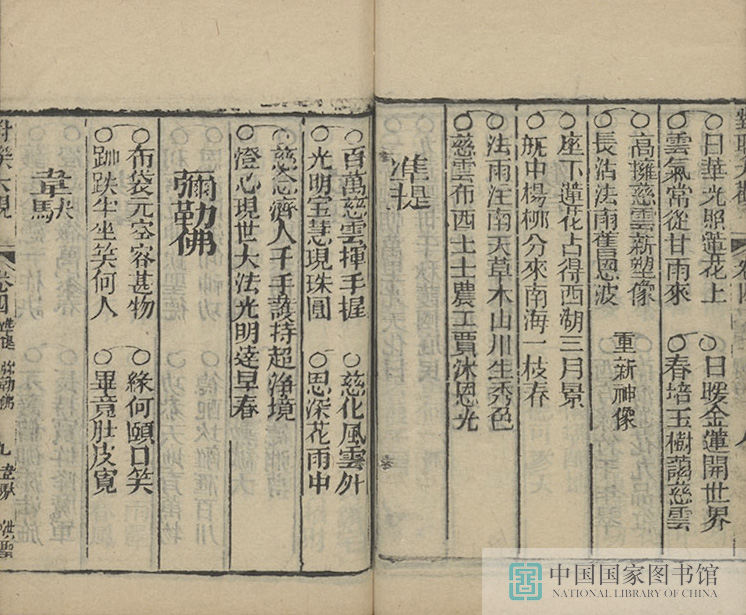 ○日華光照蓮花上　○日暖金蓮開世界
○雲氣常從甘雨來　○春培玉樹藹慈雲
○高擁慈雲新塑像
○長沾法雨舊恩波　重新神像
○座下蓮花占得西湖三月景
○瓶中楊柳分來南海一枝春
○法雨注南天草木山川生秀色
○慈雲布西土士農工賈沐恩光
准提
○百萬慈雲揮手握　○慈化風雲外
○光明宝慧現珠圓　○思深花雨中
○慈悲濟人千手護持超淨境
○澄心現世大法光明達早春
彌勒佛
○布袋元空容甚物　○緣何頤口笑
○跏趺半坐笑何人　○畢竟肚皮寬
韋馱
卷四　準提　彌勒佛　九　韋馱
中国国家图书馆
NATIONAL LIBRARY OF CHINA